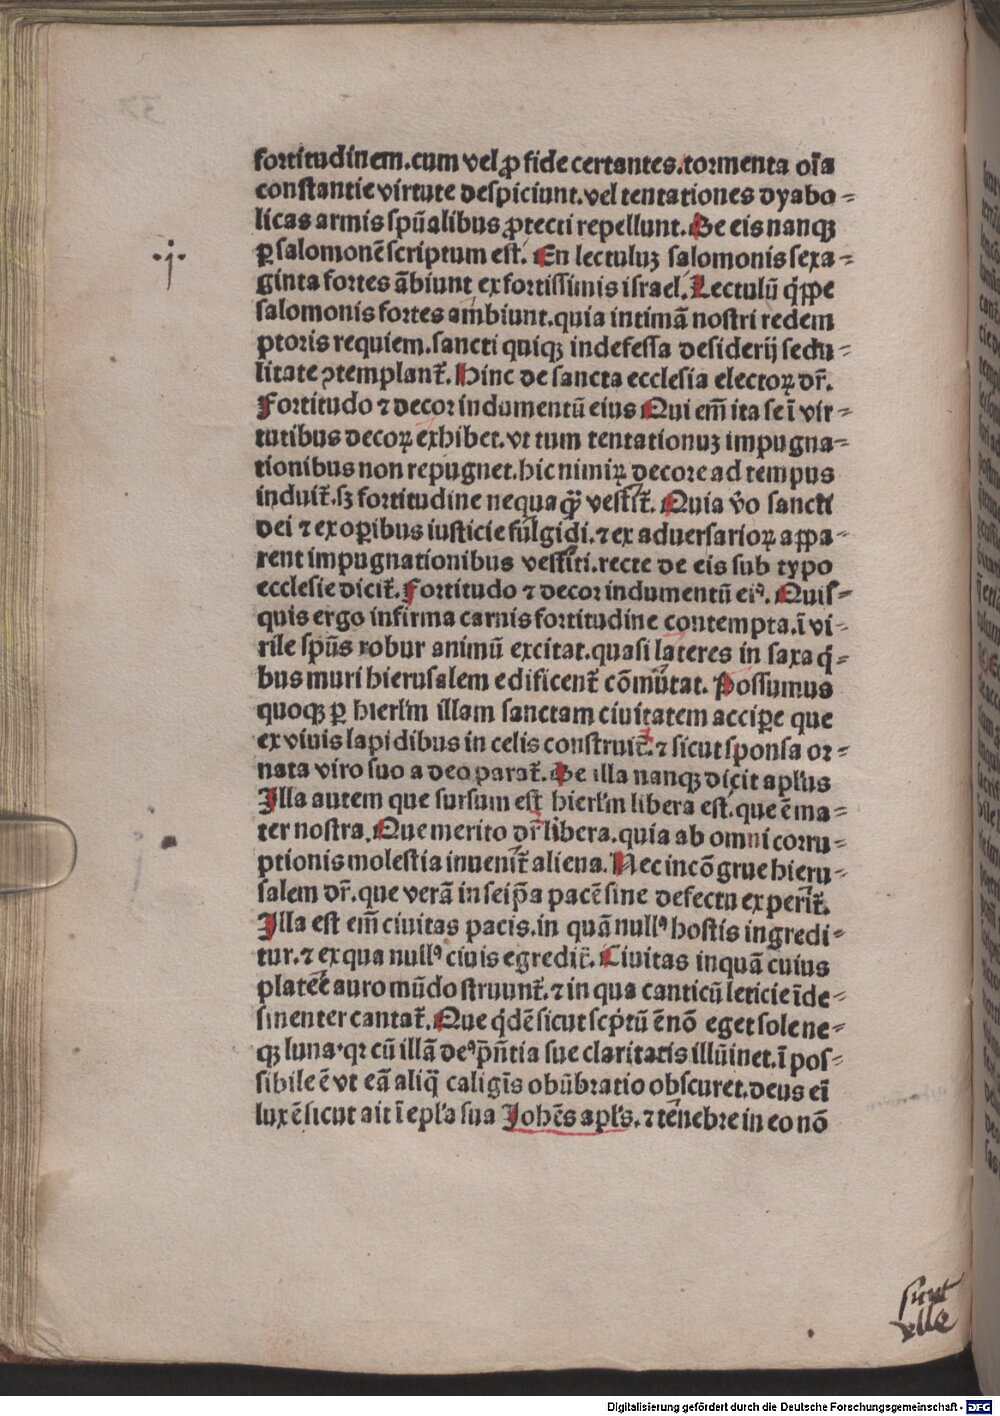 fortitudinem.cum vel ꝓ fide certantes.tormenta oi͞a
constantie virtute despiciunt.vel tentationes dyabo⸗
licas armis spūalibus ꝓtecti repellunt. De eis nanqꝫ
ꝑ salomonē scriptum est. En lectuluꝫ salomonis sexa⸗
ginta fortes ābiunt ex fortissimis israel. Lectulū q̄ppe
salomonis fortes ambiunt.quia intimā nostri redem
ptoris requiem.sancti quiqꝫ indefessa desiderij sedu⸗
litate ꝯtemplanť. Hinc de sancta ecclesia electoꝝ dr̄.
Fortitudo ⁊ decor indumentū eius Qui em̄ ita se ī vir⸗
tutibus decoꝝ exhibet.vt tum tentationuꝫ impugna⸗
tionibus non repugnet.hic nimiꝝ decore ad tempus
induiť.sꝫ fortitudine nequaq̄ꝫ vestiť. Quia v̄o sancti
dei ⁊ ex oꝑibus iusticie fulgidi.⁊ ex aduersarioꝝ appa⸗
rent impugnationibus vestiti.recte de eis sub typo
ecclesie diciť. Fortitudo ⁊ decor indumentū eiꝰ. Quis⸗
quis ergo infirma carnis fortitudine contempta.ī vi⸗
rile spūs robur animū excitat.quasi lateres in saxa q̄⸗
bus muri hierusalem edificenť cōmutat. Possumus
quoqꝫ ꝑ hierl'm illam sanctam ciuitatem accipe que
ex viuis lapidibus in celis construiť.⁊ sicut sponsa or⸗
nata viro suo a deo parať. De illa nanqꝫ dicit apl'us
Illa autem que sursum est hierl'm libera est.que ē ma⸗
ter nostra. Que merito dr̄ libera.quia ab omni corru⸗
ptionis molestia inueniť aliena. Nec incōgrue hieru⸗
salem dr̄.que verā in seip̄a pacē sine defectu experiť.
Illa est em̄ ciuitas pacis.in quā nullꝰ hostis ingredi⸗
tur.⁊ ex qua nullꝰ ciuis egrediť. Ciuitas inquā cuius
platee auro mūdo struunť.⁊ in qua canticū leticie īde⸗
sinenter cantať. Que q̄dē sicut scp̄tū ē nō eget sole ne⸗
qꝫ luna.qꝛ cū illā deꝰ p̄n̄tia sue claritatis illūinet.ī pos⸗
sibile ē vt eā aliq̄ caligīs obūbratio obscuret.deus ei̅
lux ē sicut ait ī epl'a sua Johēs apl's.⁊ tenebre in eo nō